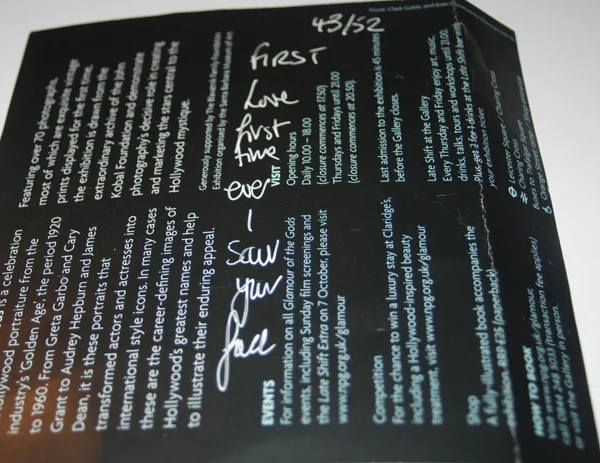 43/52
FIRST
Love
first
time
ever
I
saw
your
face
is a celebration
portraiture from the
industry's 'Golden Age', the period 1920
to 1960. From Greta Garbo and Cary
Grant to Audrey Hepburn and James
Dean, it is these portraits that
transformed actors and actresses into
international style icons. In many cases
these are the career-defining images of
Hollywood's greatest names and help
to illustrate their enduring appeal.
Featuring over 70 photographs,
most of which are exquisite vintage
prints displayed for the first time,
the exhibition is drawn from the
extraordinary archive of the John
Kobal Foundation and demonstrate
photography's decisive role in creating
and marketing the stars central to the
Hollywood mystique.
Generously supported by The Family Foundation
Exhibition organised by the Santa Barbara Museum of Art
EVENTS
For information on all Glamour of the Gods
events, including Sunday film screenings and
the Late Shift Extra on 7 October, please visit
www.npg.org.uk/glamour
Competition
For the chance to win a luxury stay at Claridge's,
including a Hollywood-inspired beauty
treatment, visit www.npg.org.uk/glamour
Shop
A fully-illustrated book accompanies the
exhibition, RRP £35 (paperback)
HOW TO BOOK
Visit www.npg.org.uk/glamour,
call 0844 248 5033 (transaction fee applies)
or visit the Gallery in person.
VISIT
Opening hours
Daily 10.00 – 18.00
(closure commences at 17.50)
Thursdays and Fridays until 21.00
(closure commences at 20.50)
Last admission to the exhibition is 45 minutes
before the Gallery closes.
Late Shift at the Gallery
Every Thursday and Friday enjoy art, music,
drinks, talks, tours and workshops until 21.00.
Plus get 2 for 1 drinks at the Late Shift bar with
your exhibition ticket.
Leicester Square / Charing Cross
Charing Cross
Buses to Trafalgar Square